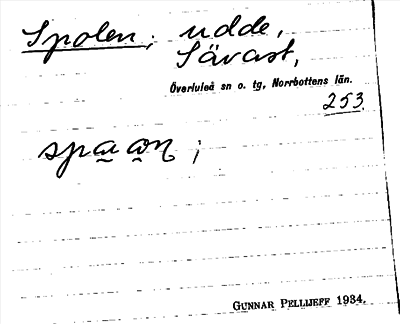 Spolen; udde,
Sävast,
Överluleå sn o. tg, Norrbottens län.
253.
spa͜ω͜n ;
GUNNAR PELLIJEFF 1934.